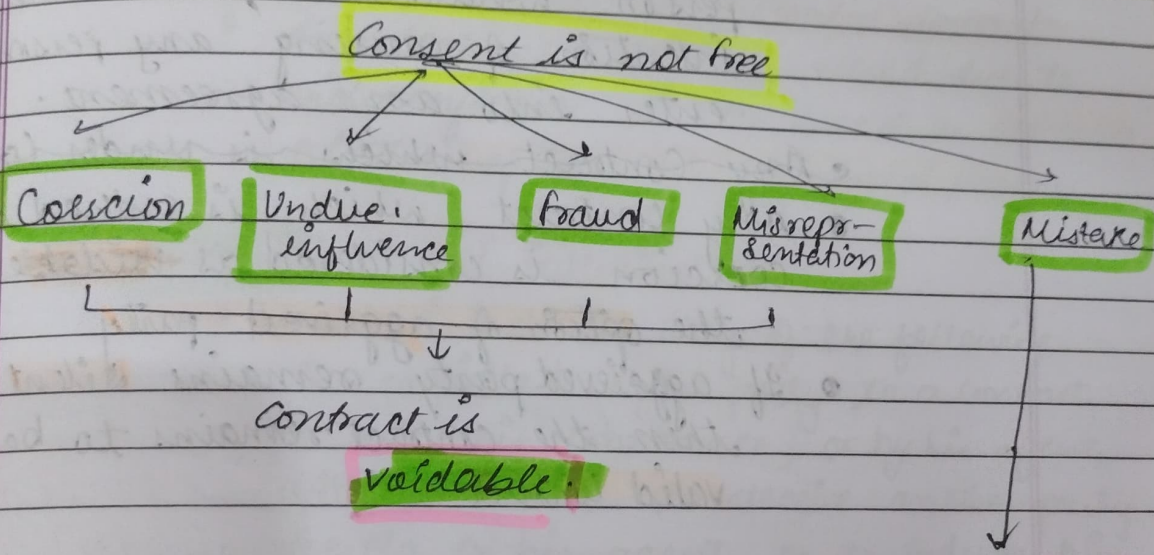 Consent is not free
Coescion
Undue.
influence
fraud
Misrepr-
sentation
Mistake
Contract is
voidable.